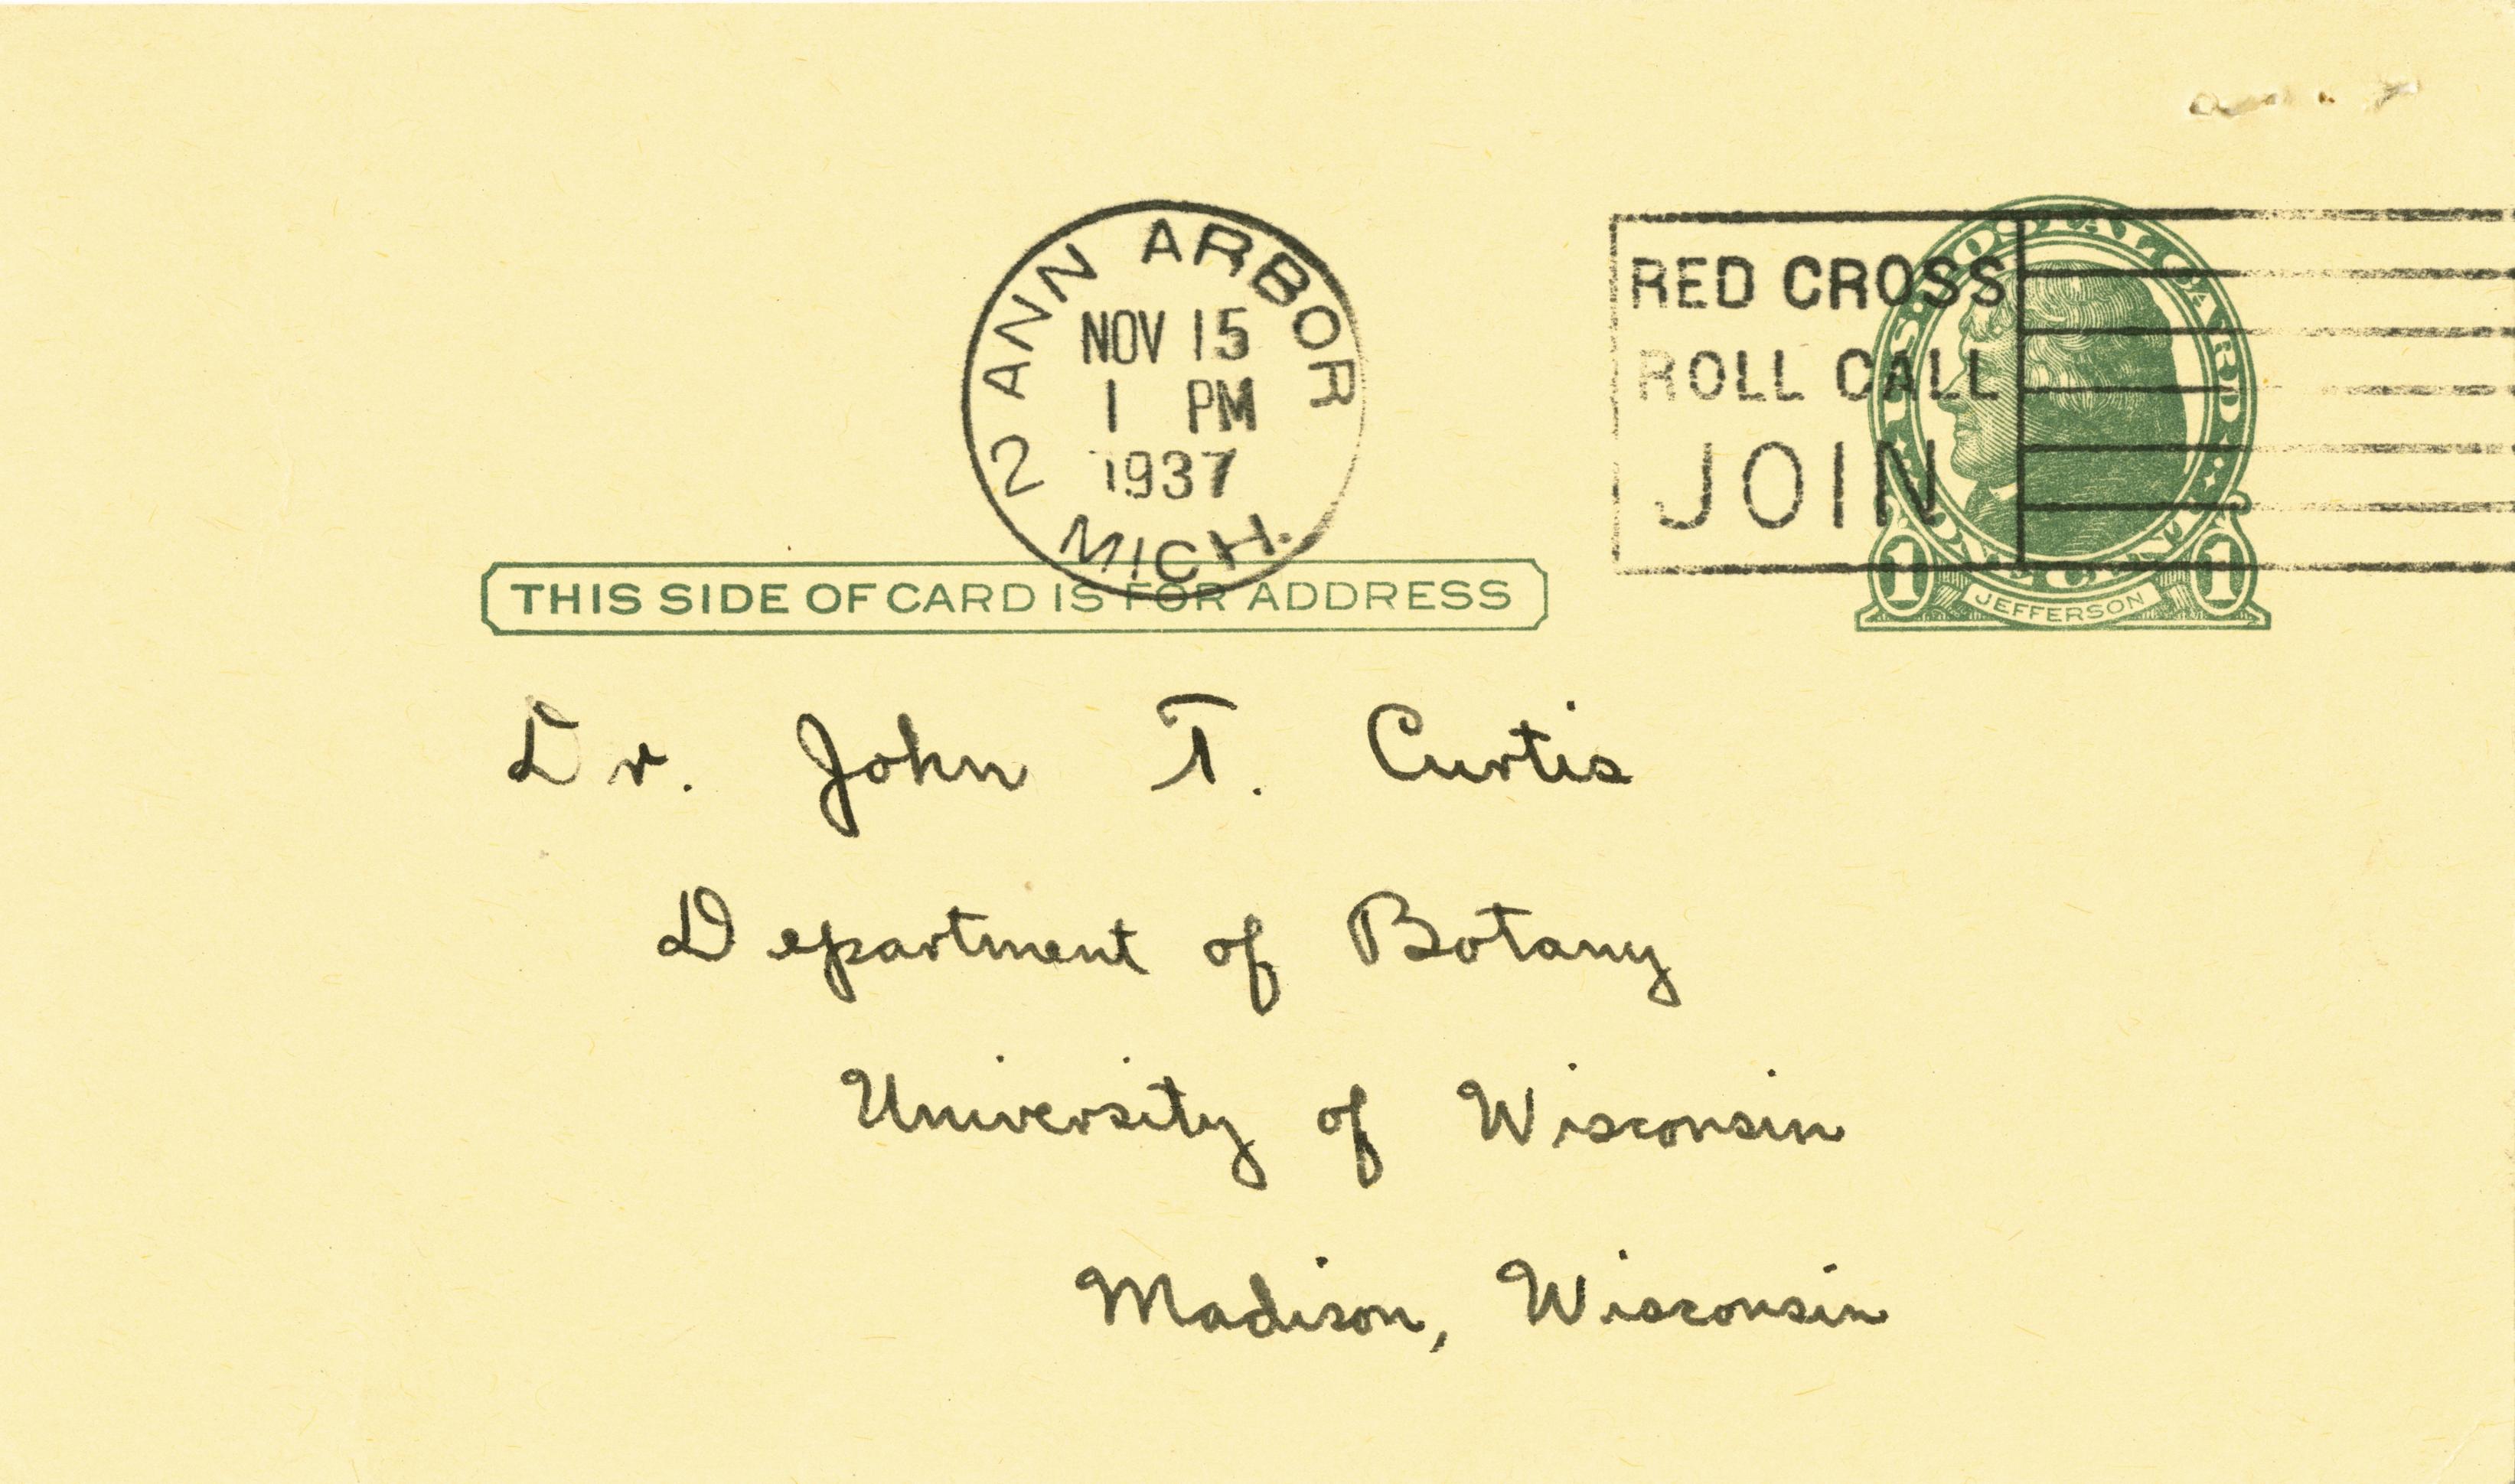 ANN ARBOR
NOV 15
1 PM
1937
2
MICH.
RED CROSS
ROLL CALL
JOIN
U.S. POSTAL CARD
ONE CENT
1 1
JEFFERSON
THIS SIDE OF CARD IS FOR ADDRESS
Dr. John T. Curtis
Department of Botany
University of Wisconsin
Madison, Wisconsin